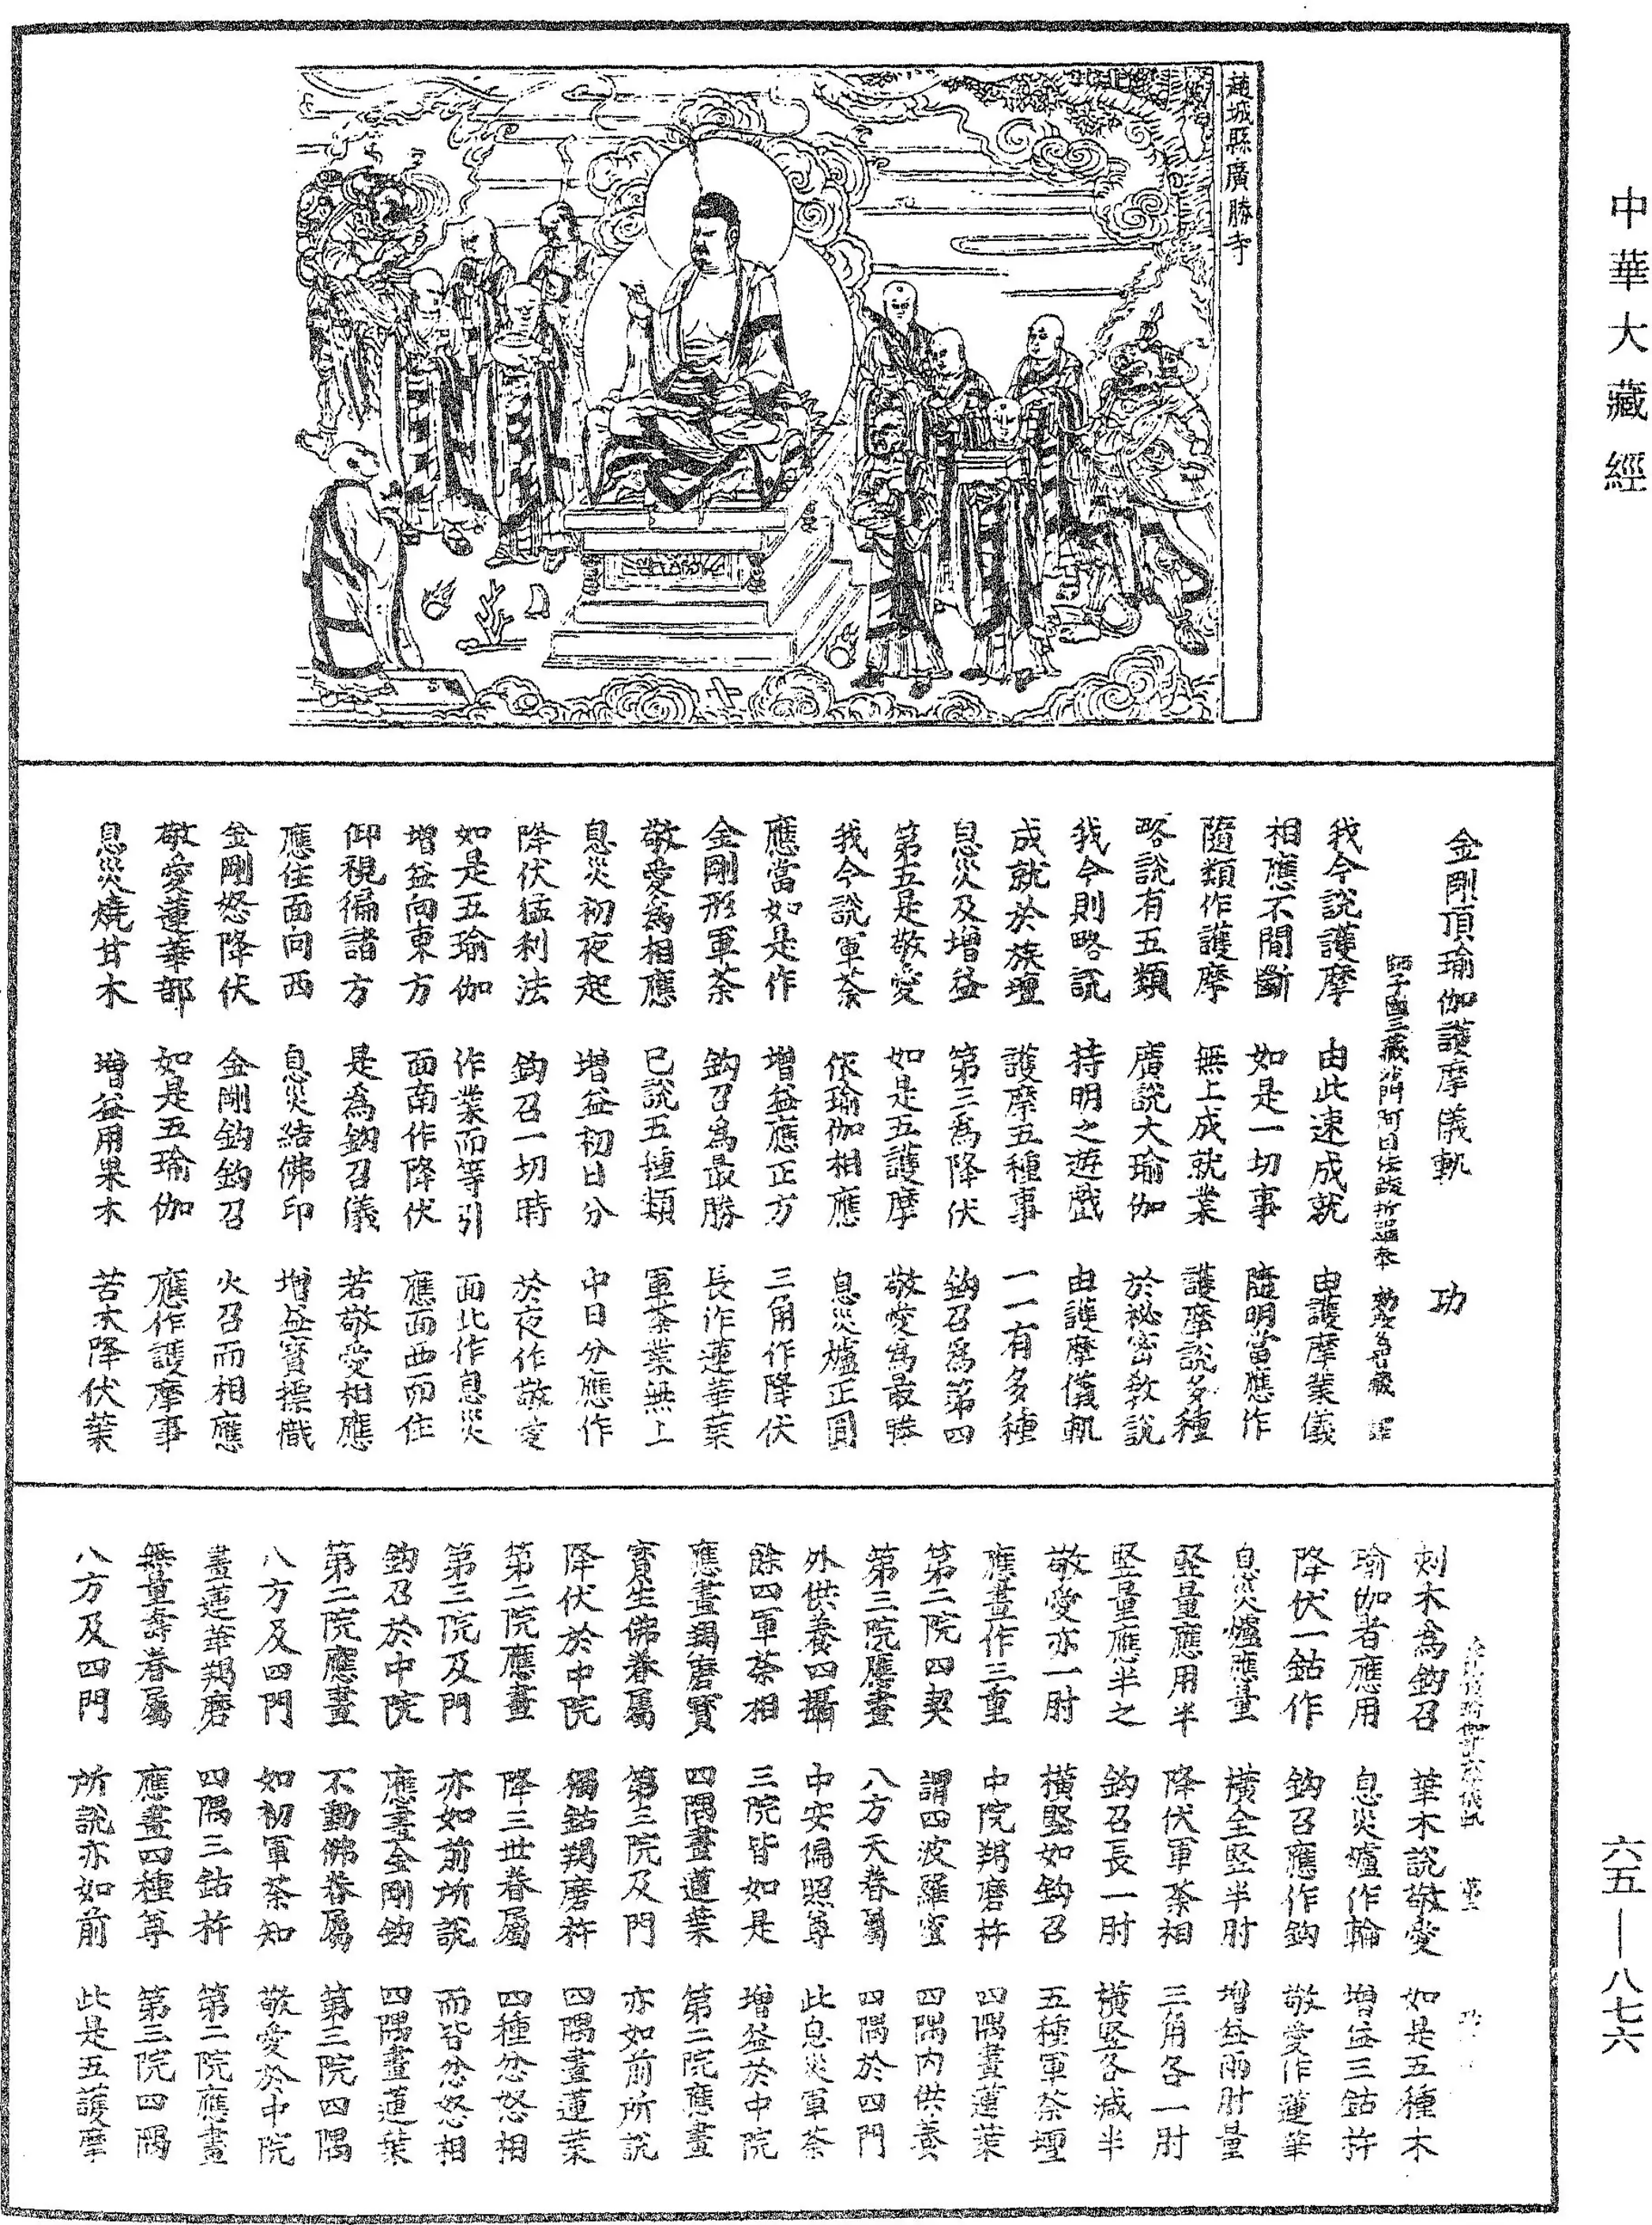 中華大藏經
趙城縣廣勝寺
金剛頂瑜伽護摩儀軌 功
師子國三藏沙門阿目佉 奉 譯
我今說護摩 由此速成就 由護摩業儀
相應不間斷 如是一切事 隨明當應作
隨類作護摩 無上成就業 護摩說多種
略說有五類 廣說大瑜伽 於祕密教說
我今則略說 持明之遊戲 由護摩儀軌
成就於族壇 護摩五種事 一一有多種
息災及增益 第三為降伏 鈎召為第四
第五是敬愛 如是五護摩 敬愛為最勝
我今說軍荼 依瑜伽相應 息災爐正圓
應當如是作 增益應正方 三角作降伏
金剛形軍荼 鈎召為最勝 長作蓮華葉
敬愛為相應 已說五種類 軍荼業無上
息災初夜起 增益初日分 中日分應作
降伏猛利法 鈎召一切時 於夜作敬愛
如是五瑜伽 作業而等引 面北作息災
增益向東方 面南作降伏 應面西而住
仰視徧諸方 是為鈎召儀 若敬愛相應
應住面向西 息災結佛印 增益寶摽幟
金剛怒降伏 金剛鈎鈎召 火召而相應
敬愛蓮華部 如是五瑜伽 應作護摩事
息災燒甘木 增益用果木 苦木降伏業
刺木為鈎召 華木說敬愛 如是五種木
瑜伽者應用 息災爐作輪 增益三鈷杵
降伏一鈷作 鈎召應作鈎 敬愛作蓮華
息災爐應量 橫全竪半肘 增益兩肘量
竪量應用半 降伏軍荼相 三角各一肘
竪量應半之 鈎召長一肘 橫竪各減半
敬愛亦一肘 橫竪如鈎召 五種軍荼壇
應畫作三重 中院羯磨杵 四隅畫蓮葉
第二院四契 謂四波羅蜜 四隅內供養
第三院應畫 八方天眷屬 四隅於四門
外供養四攝 中安徧照尊 此息災軍荼
餘四軍荼相 三院皆如是 增益於中院
應畫羯磨寶 四隅畫蓮葉 第二院應畫
寶生佛眷屬 第三院及門 亦如前所說
降伏於中院 獨鈷羯磨杵 四隅畫蓮葉
第二院應畫 降三世眷屬 四種忿怒相
第三院及門 亦如前所說 而皆忿怒相
鈎召於中院 應畫金剛鈎 四隅畫蓮葉
第二院應畫 不動佛眷屬 第三院四隅
八方及四門 如初軍荼知 敬愛於中院
畫蓮華羯磨 四隅三鈷杵 第二院應畫
無量壽眷屬 應畫四種尊 第三院四隅
八方及四門 所說亦如前 此是五護摩
六五—八七六